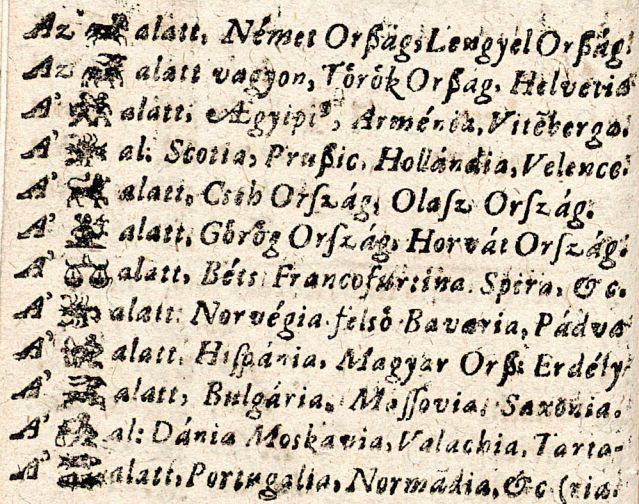 Az alatt, Német Orſzág, Lengyel Orſzág.
Az alatt vagyon, Török Orſzág, Helvetia
A' alatt, Ægyipt⁹, Arménia, Vitēberga.
A' al: Scotia, Pruſzic, Hollándia, Velence.
A' alatt, Cseh Orſzág, Olaſz Orſzág.
A' alatt, Görög Orſzág, Horvát Orſzág.
A' alatt, Béts, Francofurtina, Spira, &c.
A' alatt: Norvégia felsö Bavaria, Pádva
A' alatt, Hiſpánia, Magyar Orſz: Erdély
A' alatt, Bulgária, Maſſovia, Saxónia.
A' al: Dánia Moskavia, Valachia, Tarta-
A' alatt, Portugalia, Normadia, &c (ria.